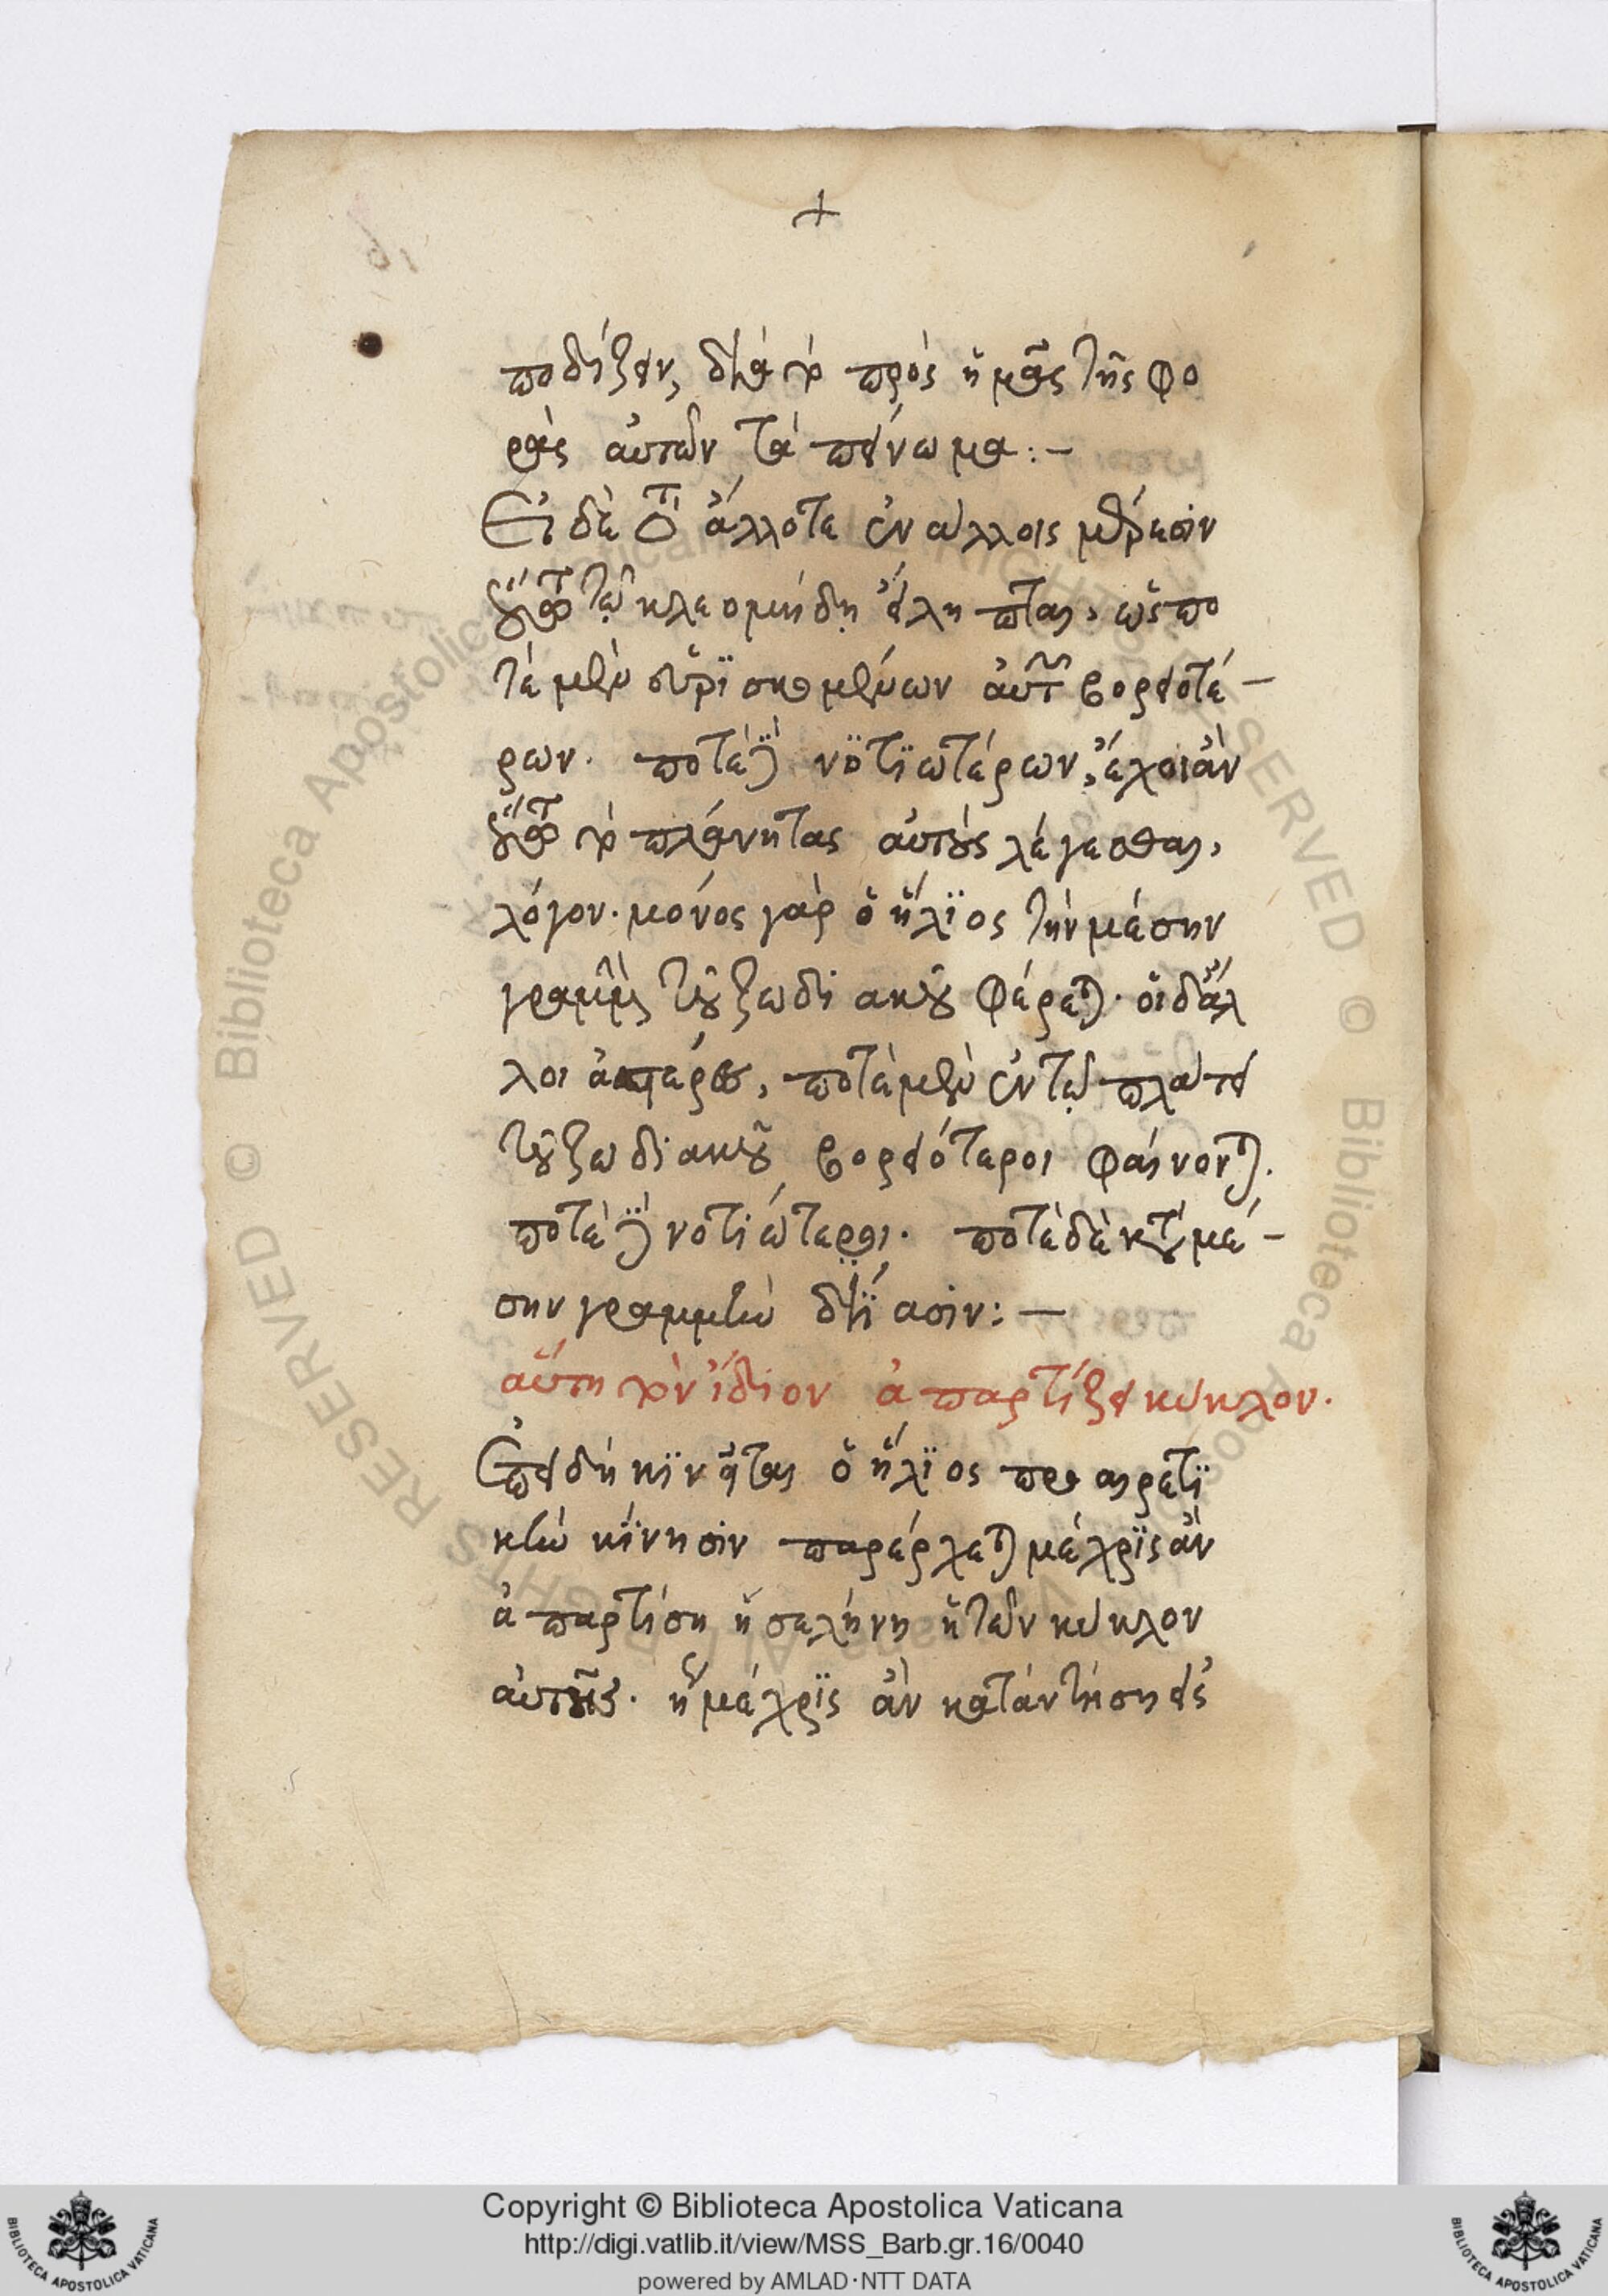 +
ποδίζειν, διὰ τὸ πρὸς ἡμᾶς τῆς φο
ρᾶς αὐτῶν τὰ πείνωμα:—
Εἰ δὲ ὅτι ἄλλοτε ἐν ἄλλοις μέρεσιν
τῷ κλεομήδῃ εἴληπται, ὡς πο
τὲ μὲν εὑρισκομένων αὐτῶν βορειοτέ—
ρων. ποτὲ δὲ νοτιωτέρων, ἔχοι ἂν
τὸ πλάνητας αὐτοὺς λέγεσθαι,
λόγον. μόνος γὰρ ὁ ἥλιος τὴν μέσην
γραμμὴν τοῦ ζωδιακοῦ φέρεται. οἱ δ' ἄλ
λοι ἀστέρες, ποτὲ μὲν ἐν τῷ πλάτει
τοῦ ζωδιακοῦ βορειότεροι φαίνονται.
ποτὲ δὲ νοτιώτεροι. ποτὲ δὲ κατὰ μέ—
σην γραμμὴν διίασιν:—
αὕτη τὸν ἴδιον ἀπαρτίζει κύκλον.
Ἐπειδὴ κινῆται ὁ ἥλιος προαιρετι
κὴν κίνησιν παρέρχεται μέχρις ἂν
ἀπαρτίση ἡ σελήνη ἢ τὸν κύκλον
αὐτῆς. ἢ μέχρις ἂν καταντήση εἰς
Copyright © Biblioteca Apostolica Vaticana
http://digi.vatlib.it/view/MSS_Barb.gr.16/0040
powered by AMLAD·NTT DATA